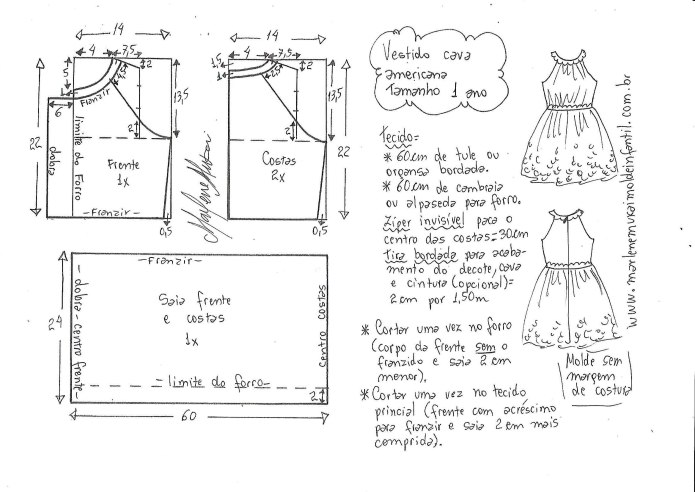 14
4
7,5
2
5
1
1,5
Franzir
6
13,5
22
dobra
limite do Forro
2
Frente
1x
-Franzir-
0,5
14
4
7,5
2
1,5
1
2,5
13,5
2
Costas
2x
22
0,5
-Franzir-
24
-dobra-centro frente-
Saia frente
e costas
1x
centro costas
-limite do forro-
2
60
Vestido cava
americana
Tamanho 1 ano
Tecido:
* 60cm de tule ou
organsa bordada.
* 60cm de cambraia
ou alpaseda para forro.
Ziper invisível para o
centro das costas=30cm
Tira bordada para acaba-
mento do decote, cava
e cintura (opcional)=
2cm por 1,50m
* Cortar uma vez no forro
(corpo da frente sem o
franzido e saia 2cm
menor).
* Cortar uma vez no tecido
princial (frente com acréscimo
para franzir e saia 2cm mais
comprida).
www.marlenemukaimoldeinfantil.com.br
Molde sem
margem
de costura